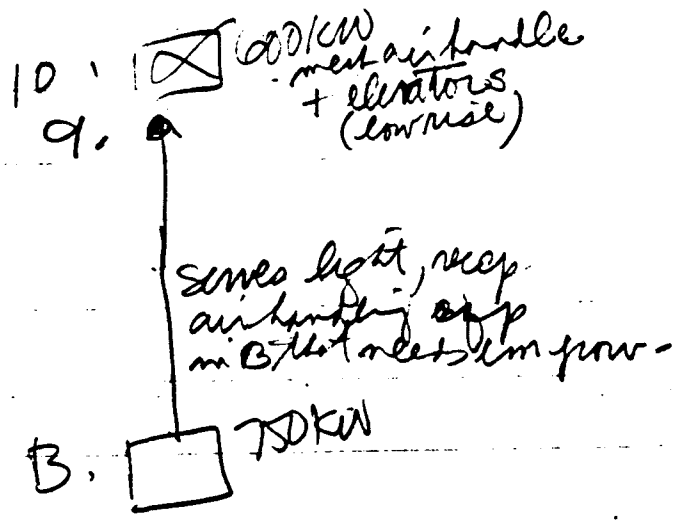 10. 600 KW
mech air handle
+ elevators
(low rise)
9.
serves light, recep
air handling eqp
in B that needs em pow-
B. 750 KW